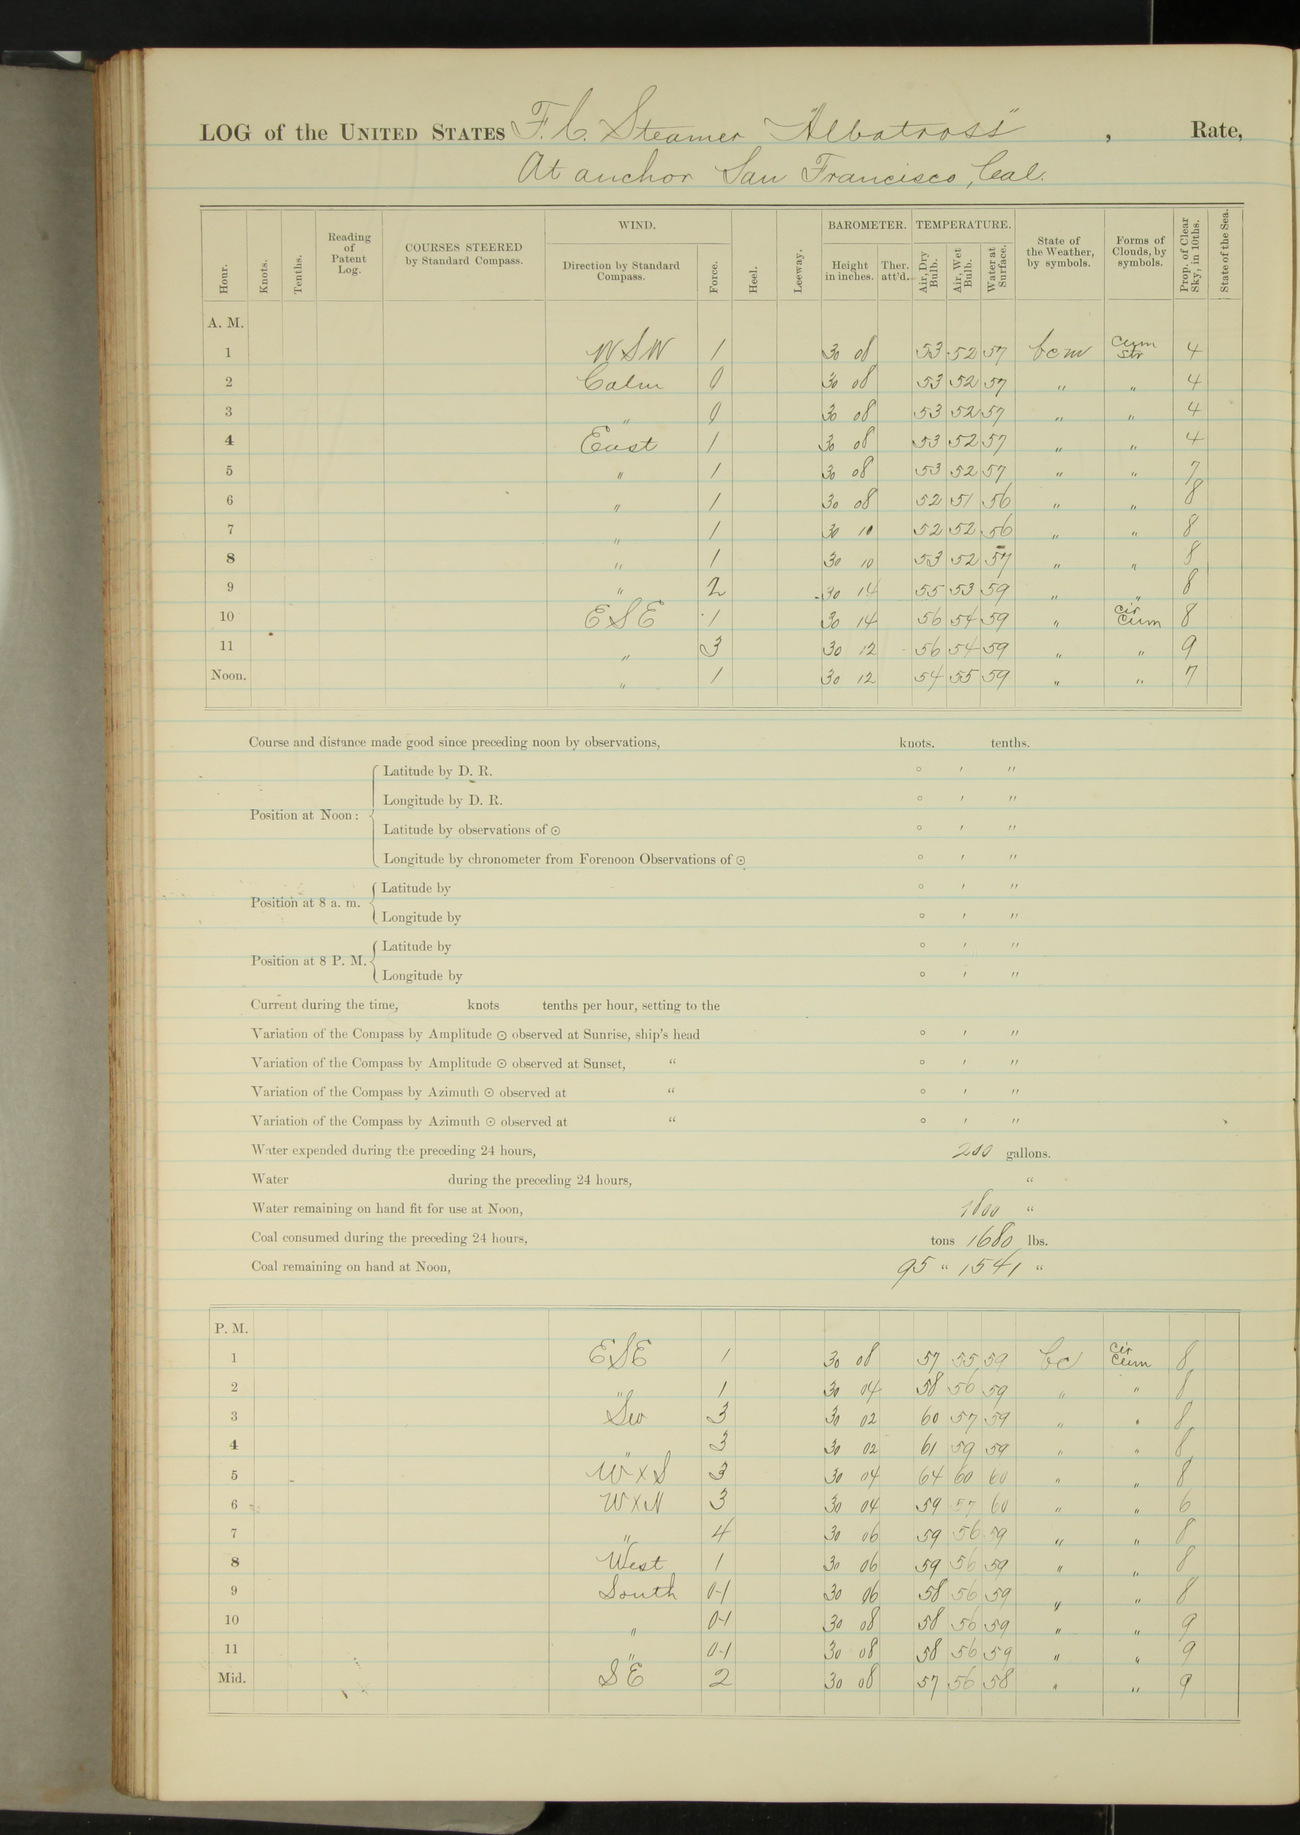 LOG of the UNITED STATES F. C. Steamer "Albatross", Rate,
At anchor San Francisco, Cal.
Hour. Knots. Tenths. Reading of Patent Log. COURSES STEERED by Standard Compass. WIND. Direction by Standard Compass. Force. Heel. Leeway. BAROMETER. Height in inches. Ther. att'd. TEMPERATURE. Air, Dry Bulb. Air, Wet Bulb. Water at Surface. State of the Weather, by symbols. Forms of Clouds, by symbols. Prop. of Clear Sky, in 10ths. State of the Sea.
A. M.
1 WSW 1 30 08 53 52 57 bcm Cum Str 4
2 Calm 0 30 08 53 52 57 " " 4
3 " 0 30 08 53 52 57 " " 4
4 East 1 30 08 53 52 57 " " 4
5 " 1 30 08 53 52 57 " " 7
6 " 1 30 08 52 51 56 " " 8
7 " 1 30 10 52 52 56 " " 8
8 " 1 30 10 53 52 57 " " 8
9 " 2 30 14 55 53 59 " " 8
10 ESE 1 30 14 56 54 59 " Cir Cum 8
11 " 3 30 12 56 54 59 " " 9
Noon. " 1 30 12 54 55 59 " " 7
Course and distance made good since preceding noon by observations, knots. tenths.
Position at Noon:
Latitude by D. R. ° ′ ″
Longitude by D. R. ° ′ ″
Latitude by observations of ⊙ ° ′ ″
Longitude by chronometer from Forenoon Observations of ⊙ ° ′ ″
Position at 8 a. m.
Latitude by ° ′ ″
Longitude by ° ′ ″
Position at 8 P. M.
Latitude by ° ′ ″
Longitude by ° ′ ″
Current during the time, knots tenths per hour, setting to the
Variation of the Compass by Amplitude ⊙ observed at Sunrise, ship's head ° ′ ″
Variation of the Compass by Amplitude ⊙ observed at Sunset, " ° ′ ″
Variation of the Compass by Azimuth ⊙ observed at " ° ′ ″
Variation of the Compass by Azimuth ⊙ observed at " ° ′ ″
Water expended during the preceding 24 hours, 200 gallons.
Water during the preceding 24 hours, "
Water remaining on hand fit for use at Noon, 1800 "
Coal consumed during the preceding 24 hours, tons 1680 lbs.
Coal remaining on hand at Noon, 95 " 1541 "
P. M.
1 ESE 1 30 08 57 55 59 bc Cir Cum 8
2 " 1 30 04 58 56 59 " " 8
3 SW 3 30 02 60 57 59 " " 8
4 " 3 30 02 61 59 59 " " 8
5 WxS 3 30 04 64 60 60 " " 8
6 WxN 3 30 04 59 57 60 " " 6
7 " 4 30 06 59 56 59 " " 8
8 West 1 30 06 59 56 59 " " 8
9 South 0-1 30 06 58 56 59 " " 8
10 " 0-1 30 08 58 56 59 " " 9
11 " 0-1 30 08 58 56 59 " " 9
Mid. SE 2 30 08 57 56 58 " " 9